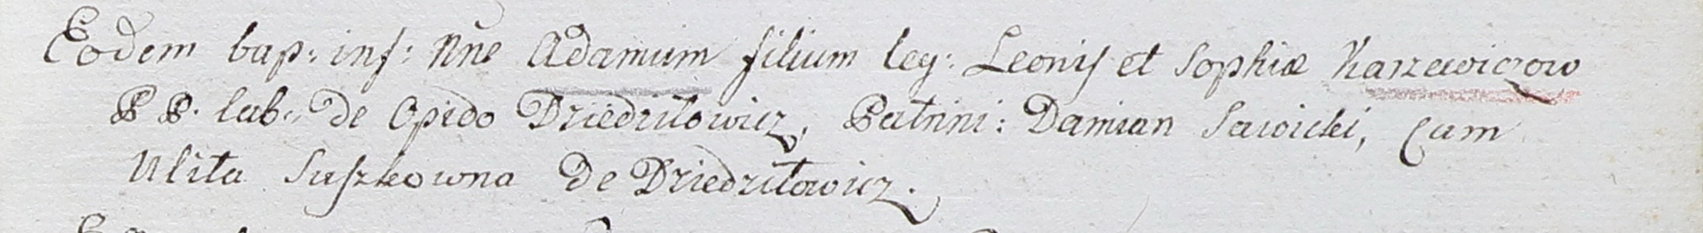 Eodem bap: inf: Nne Adamum filium leg: Leonis et Sophiæ Karzewiczow
P P. lab: de Opido Dziedziłowicz, Patrini: Damian Sawicki, cum
Ulita Suszkowna de Dziedziłowicz.